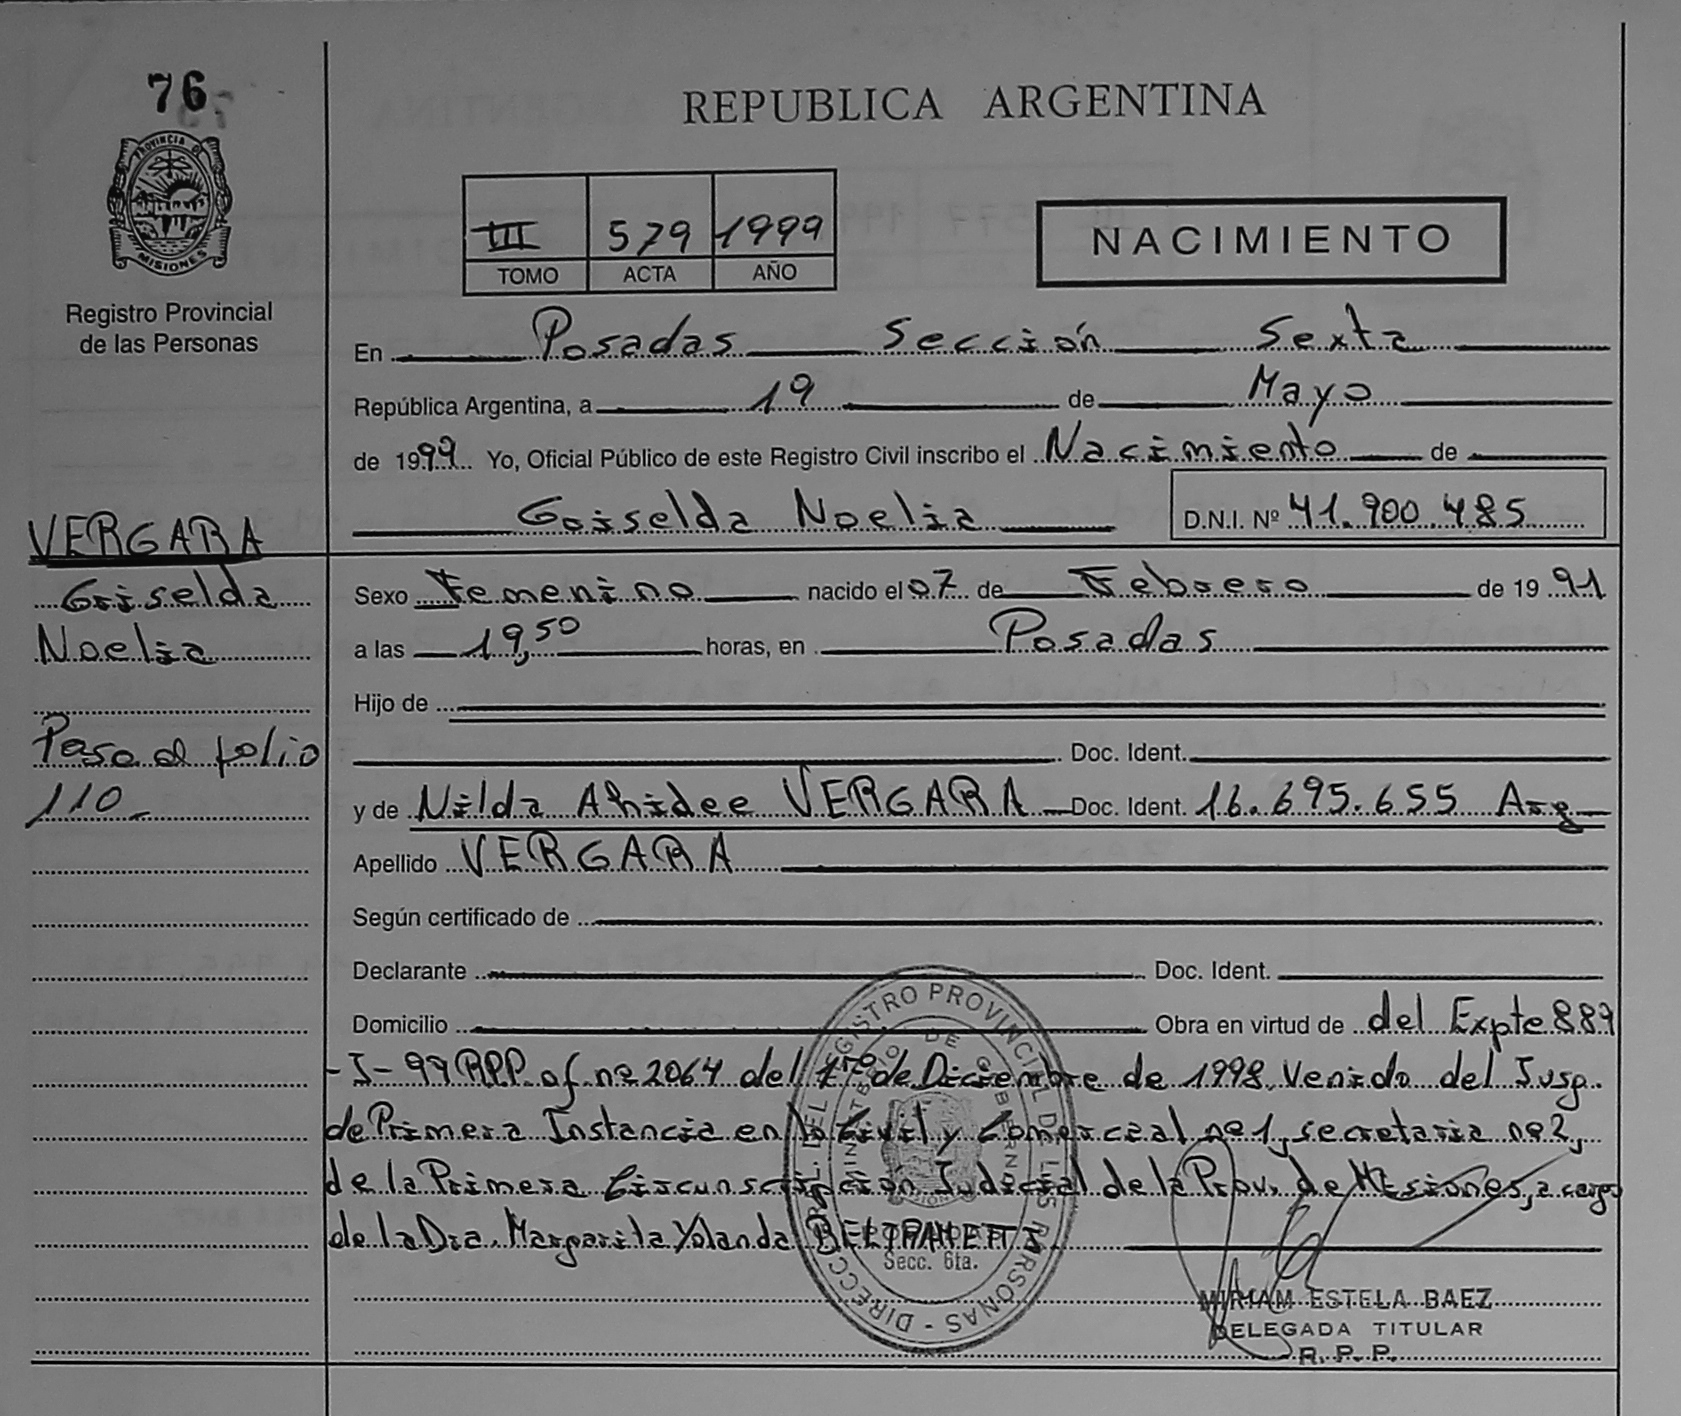 76
REPUBLICA ARGENTINA
PROVINCIA DE
MISIONES
Registro Provincial
de las Personas
III 579 1999
TOMO ACTA AÑO
NACIMIENTO
En Posadas Sección Sexta
República Argentina, a 19 de Mayo
de 1999 Yo, Oficial Público de este Registro Civil inscribo el Nacimiento de
Griselda Noelia D.N.I. Nº 41.900.485
VERGARA
Griselda
Noelia
Pasa al folio
110-
Sexo Femenino nacido el 07 de Febrero de 1991
a las 19,50 horas, en Posadas
Hijo de
Doc. Ident.
y de Nilda Ahidee VERGARA Doc. Ident. 16.695.655 Arg
Apellido VERGARA
Según certificado de
Declarante Doc. Ident.
Domicilio Obra en virtud de del Expte 889
-J-99 RPP. of. nº 2064 del 1ro de Diciembre de 1998, Venido del Jusg.
de Primera Instancia en lo Civil y Comercial nº 1, secretaria nº 2,
de la Primera Circunscripción Judicial de la Prov. de Misiones, a cargo
de la Dra. Margarita Yolanda BELTRAMETTI
DIRECC. GRAL. DEL REGISTRO PROVINCIAL DE LAS PERSONAS
MINISTERIO DE GOBIERNO
Secc. 6ta.
MIRIAM ESTELA BAEZ
DELEGADA TITULAR
R. P. P.